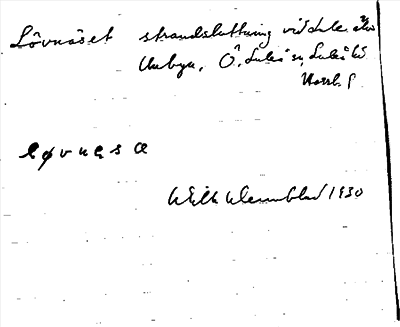 Lövnäset strandsluttning vid Lule älv
Unbyn, Ö. Luleå sn, Luleå td
Norrb. l
løvnɛsɶ
Wilh Wennblad 1930